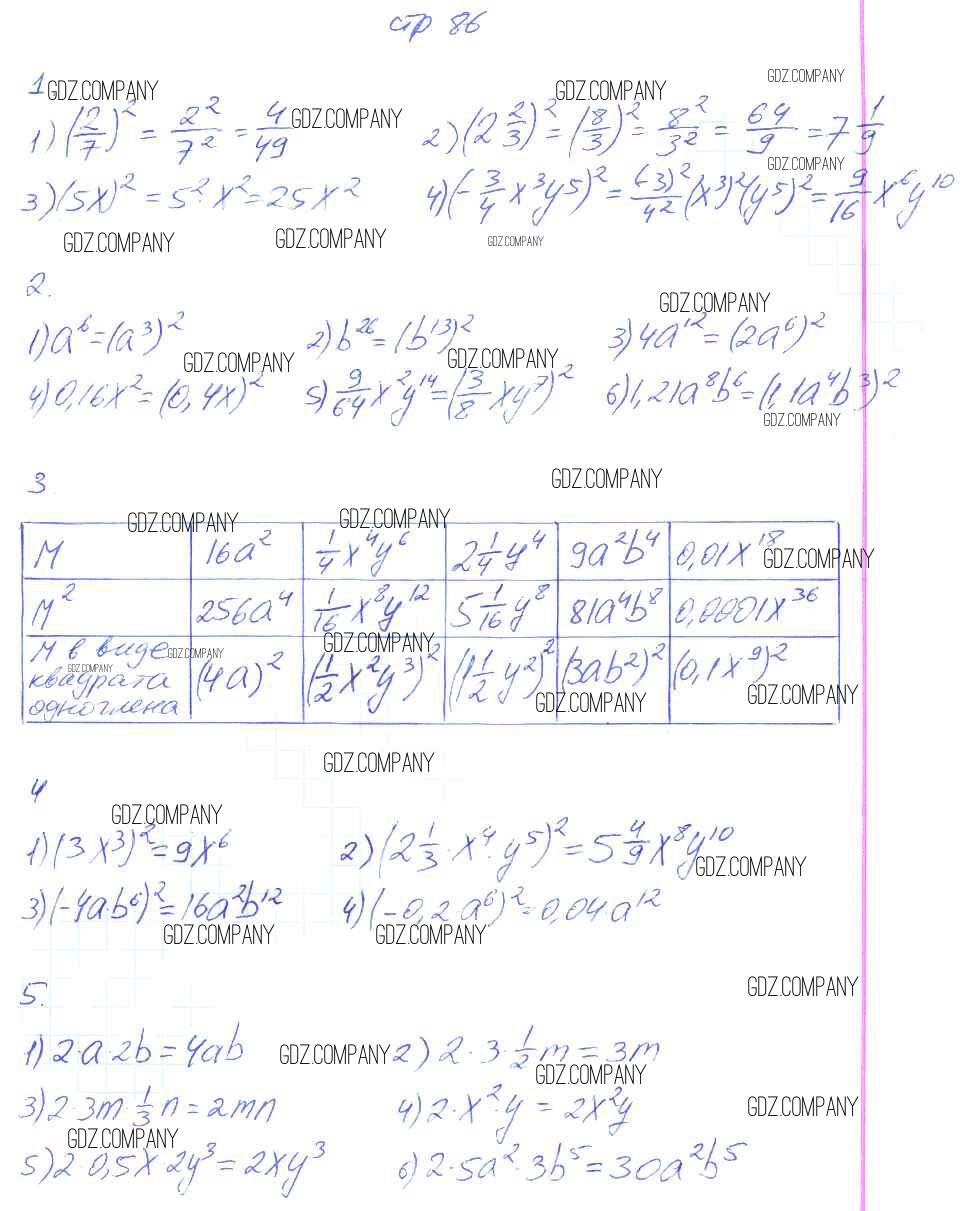 стр 86
1 GDZ.COMPANY GDZ.COMPANY GDZ.COMPANY
1) (2/7)² = 2²/7² = 4/49 GDZ.COMPANY 2) (2 2/3)² = (8/3)² = 8²/3² = 64/9 = 7 1/9
GDZ.COMPANY
3) (5x)² = 5²·x² = 25x² 4) (-3/4 x³y⁵)² = (-3)²/4² (x³)²(y⁵)² = 9/16 x⁶y¹⁰
GDZ.COMPANY GDZ.COMPANY GDZ.COMPANY
2.
GDZ.COMPANY
1) a⁶ = (a³)² 2) b²⁶ = (b¹³)² 3) 4a¹² = (2a⁶)²
GDZ.COMPANY GDZ.COMPANY
4) 0,16x² = (0,4x)² 5) 9/64 x²y¹⁴ = (3/8 xy⁷)² 6) 1,21a⁸b⁶ = (1,1a⁴b³)²
GDZ.COMPANY
3. GDZ.COMPANY
GDZ.COMPANY GDZ.COMPANY
M 16a² 1/4 x⁴y⁶ 2 1/4 y⁴ 9a²b⁴ 0,01x¹⁸ GDZ.COMPANY
M² 256a⁴ 1/16 x⁸y¹² 5 1/16 y⁸ 81a⁴b⁸ 0,0001x³⁶
GDZ.COMPANY
M в виде GDZ.COMPANY
GDZ.COMPANY
квадрата (4a)² (1/2 x²y³)² (1 1/2 y²)² (3ab²)² (0,1x⁹)²
GDZ.COMPANY GDZ.COMPANY
одночлена
GDZ.COMPANY
4
GDZ.COMPANY
1) (3x³)² = 9x⁶ 2) (2 1/3·x⁴·y⁵)² = 5 4/9 x⁸y¹⁰
GDZ.COMPANY
3) (-4a·b⁶)² = 16a²b¹² 4) (-0,2 a⁶)² = 0,04·a¹²
GDZ.COMPANY GDZ.COMPANY
5. GDZ.COMPANY
1) 2·a·2b = 4ab GDZ.COMPANY 2) 2·3·1/2 m = 3m
GDZ.COMPANY
3) 2·3m·1/3 n = 2mn 4) 2·x²·y = 2x²y GDZ.COMPANY
GDZ.COMPANY
5) 2 0,5x·2y³ = 2xy³ 6) 2·5a²·3b⁵ = 30a²b⁵